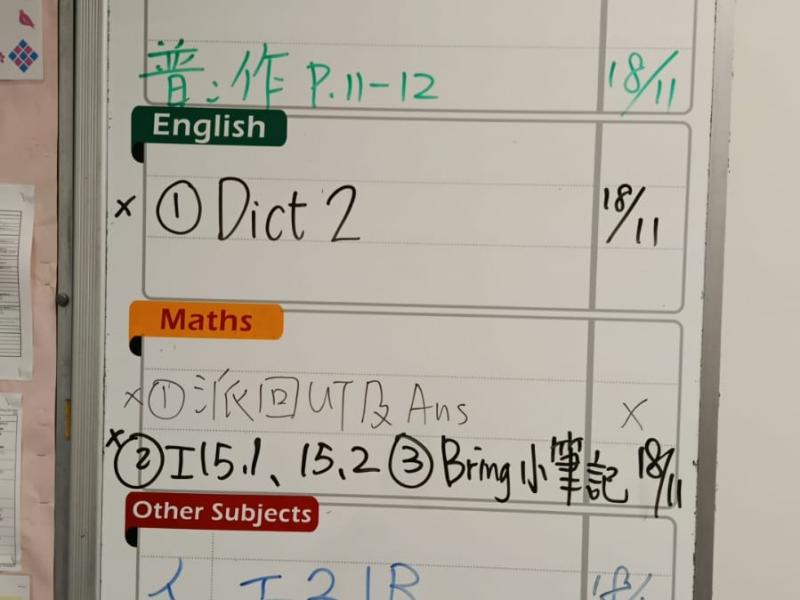 普:作 P.11-12 18/11
English
x ① Dict 2 18/11
Maths
x ① 派回UT及Ans x
x ② I15.1、15.2 ③ Bring小筆記 18/11
Other Subjects